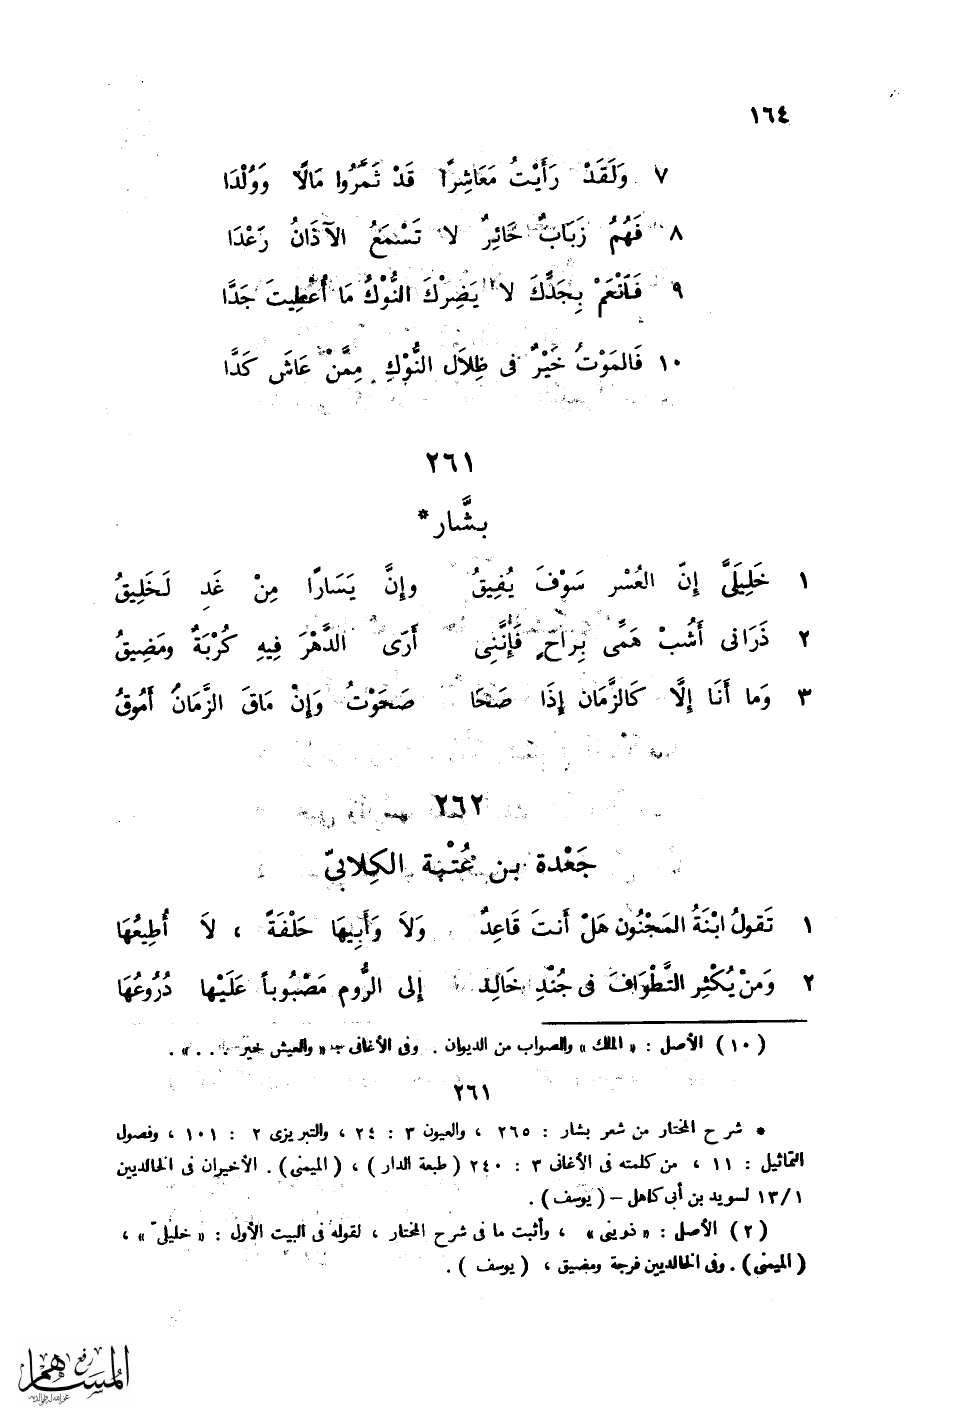 ١٦٤
٧ وَلَقَدْ رَأَيْتُ مَعَاشِرًا قَدْ ثَمَّرُوا مَالًا وَوُلْدَا
٨ فَهُمُ زَبَابٌ حَائِرٌ لا تَسْمَعُ الآذَانُ رَعْدَا
٩ فَانْعَمْ بِجَدِّكَ لا يَضِرْكَ النُّوْكُ مَا أُعْطِيتَ جَدَّا
١٠ فَالمَوْتُ خَيْرٌ فى ظِلاَلِ النُّوْكِ مِمَّنْ عَاشَ كَدَّا
٢٦١
بشَّار*
١ خَلِيلَىَّ إِنّ العُسْر سَوْفَ يُفِيقُ وإِنَّ يَسَارًا مِنْ غَدٍ لَخَلِيقُ
٢ ذَرَانى أَشُبْ هَمِّى بِرَاحٍ فَإِنَّنِى أَرَى الدَّهْرَ فِيهِ كُرْبَةٌ ومَضِيقُ
٣ وَما أَنَا إِلَّا كَالزَّمَانِ إِذَا صَحَا صَحَوْتُ وَإِنْ مَاقَ الزَّمَانُ أَمُوقُ
٢٦٢
جَعْدة بن عُتْبة الكِلابيّ
١ تَقولُ ابْنَةُ المَجْنُونِ هَلْ أَنتَ قَاعِدٌ وَلاَ وَأَبِيهَا حَلْفَةً ، لاَ أُطِيعُهَا
٢ وَمَنْ يُكْثِرِ التَّطْوَافَ فى جُنْدِ خَالِدٍ إلى الرُّومِ مَصْبُوباً عَلَيْها دُرُوعُهَا
(١٠) الأصل : « الملك » والصواب من الديوان . وفى الأغانى « والعيش خير . . . » .
٢٦١
* شرح المختار من شعر بشار : ٢٦٥ ، والعيون ٣ : ٢٤ ، والتبريزى ٢ : ١٠١ ، وفصول
التماثيل : ١١ ، من كلمته فى الأغانى ٣ : ٢٤٠ ( طبعة الدار ) ، ( الميمنى ) . الأخيران فى الخالديين
١٣/١ لسويد بن أبى كاهل – ( يوسف ) .
(٢) الأصل : « ذوينى » ، وأثبت ما فى شرح المختار ، لقوله فى البيت الأول : « خليلىّ » ،
( الميمنى ) . وفى الخالديين فرجة ومضيق ، ( يوسف ) .